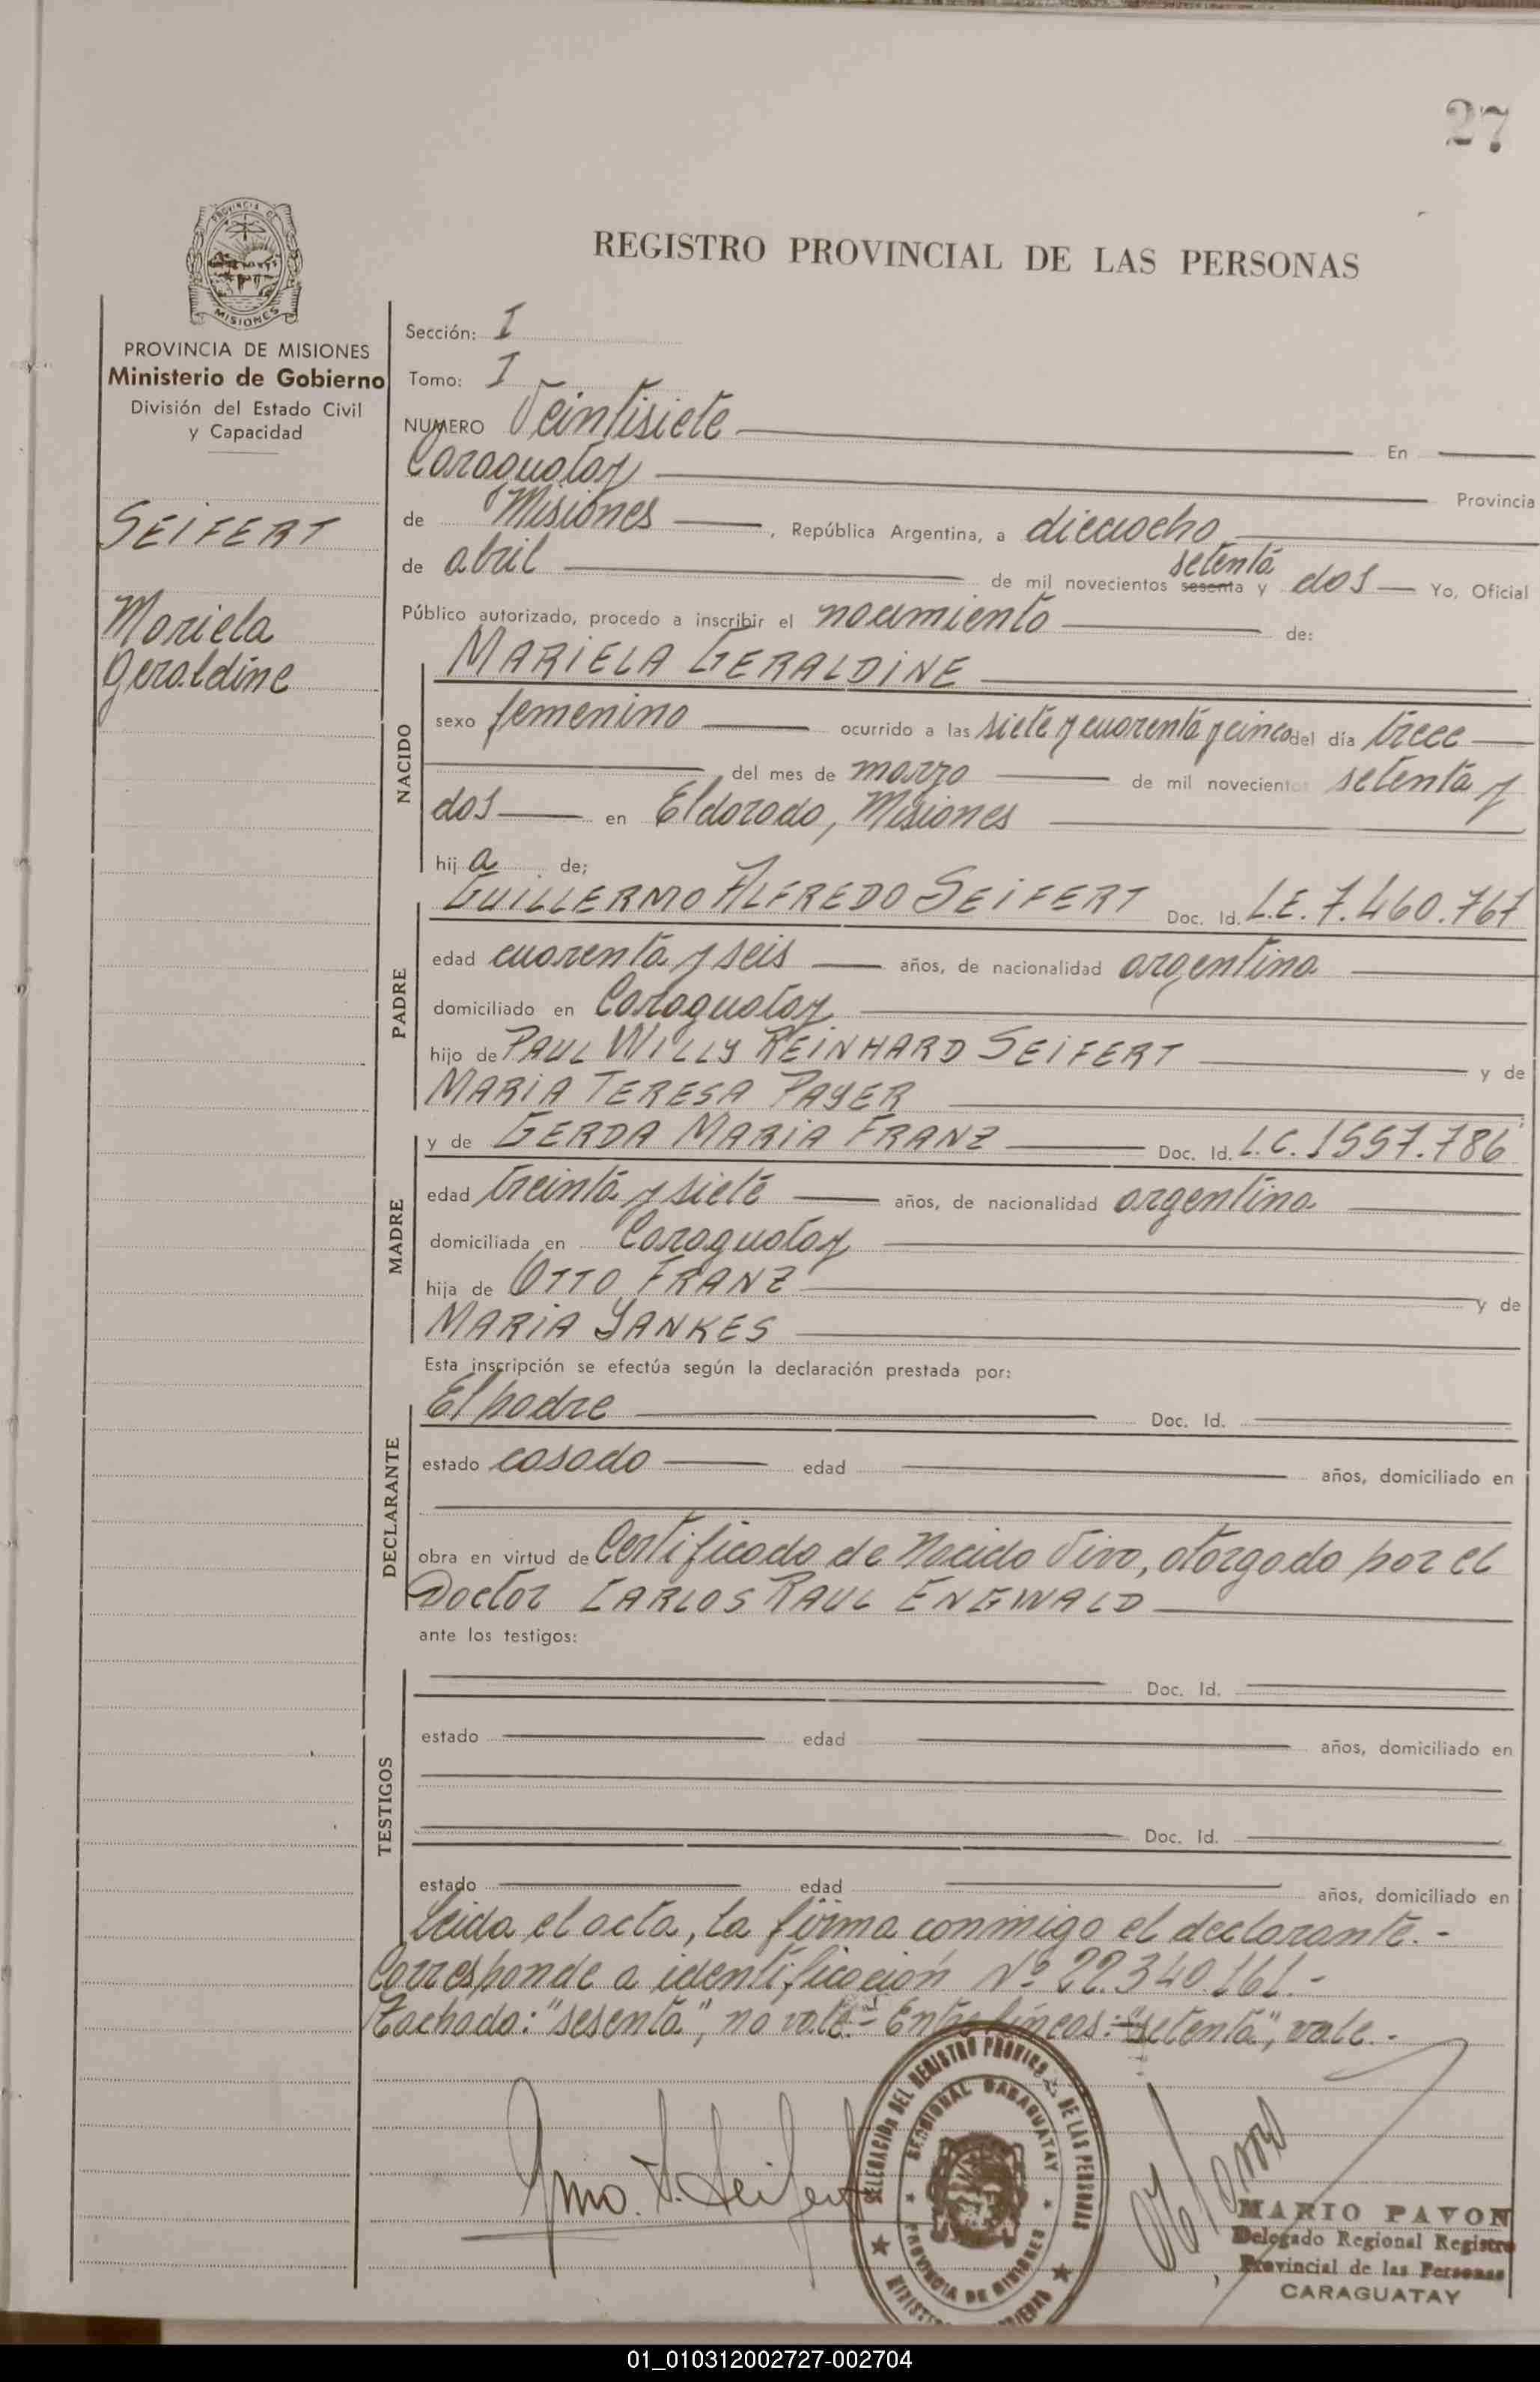 27
PROVINCIA DE
MISIONES
REGISTRO PROVINCIAL DE LAS PERSONAS
PROVINCIA DE MISIONES
Ministerio de Gobierno
División del Estado Civil
y Capacidad
SEIFERT
Mariela
Geraldine
Sección: I
Tomo: I
NUMERO Veintisiete En
Caraguatay Provincia
de Misiones, República Argentina, a dieciocho
de abril de mil novecientos sesenta setenta y dos Yo, Oficial
Público autorizado, procedo a inscribir el nacimiento de:
NACIDO
MARIELA GERALDINE
sexo femenino ocurrido a las siete y cuarenta y cinco del día trece
del mes de marzo de mil novecientos setenta y
dos en Eldorado, Misiones
hija de;
PADRE
GUILLERMO ALFREDO SEIFERT Doc. Id. L.E. 7.460.767
edad cuarenta y seis años, de nacionalidad argentina
domiciliado en Caraguatay
hijo de PAUL WILLY REINHARD SEIFERT y de
MARIA TERESA PAYER
MADRE
y de GERDA MARIA FRANZ Doc. Id. L.C. 1557.786
edad treinta y siete años, de nacionalidad argentina
domiciliada en Caraguatay
hija de OTTO FRANZ y de
MARIA YANKES
Esta inscripción se efectúa según la declaración prestada por:
DECLARANTE
El padre Doc. Id.
estado casado edad años, domiciliado en
obra en virtud de Certificado de Nacido Vivo, otorgado por el
Doctor CARLOS RAUL ENGWALD
ante los testigos:
TESTIGOS
Doc. Id.
estado edad años, domiciliado en
Doc. Id.
estado edad años, domiciliado en
Leida el acta, la firma conmigo el declarante.-
Corresponde a identificación Nº 22.340.161.-
Tachado: "sesenta", no vale.- Entre líneas: "setenta", vale.-
Gmo. A. Seifert
DELEGACIÓN DEL REGISTRO PROVINC. DE LAS PERSONAS
SECCIONAL CARAGUATAY
PROVINCIA DE MISIONES
MARIO PAVON
Delegado Regional Registro
Provincial de las Personas
CARAGUATAY
01_010312002727-002704